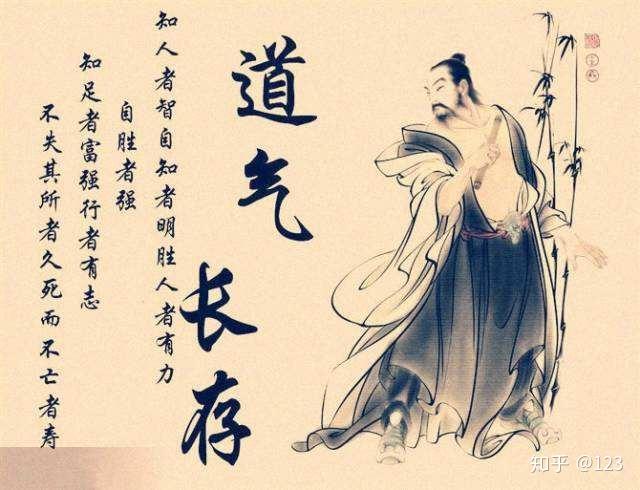 道气长存
知人者智自知者明胜人者有力
自胜者强
知足者富强行者有志
不失其所者久死而不亡者寿
知乎 @123